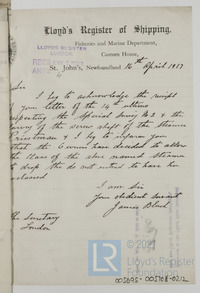 Lloyd's Register of Shipping,
Fisheries and Marine Department,
Custom House,
St. John's, Newfoundland 16th April 1917
LLOYD'S REGISTER
Sir
I beg to acknowledge the receipt
of your letter of the 14th ultimo
respecting the Special Survey No 3 & the
of the screw shaft of the Steamer
& I beg to inform you
that the Owners have decided to allow
the Class of the above named Steamer
to drop the do not intend to have her
classed
I am Sir
Your obedient servant
James
The Secretary
London
LR
© 2021
Lloyd's Register
Foundation
005695-005708-0212